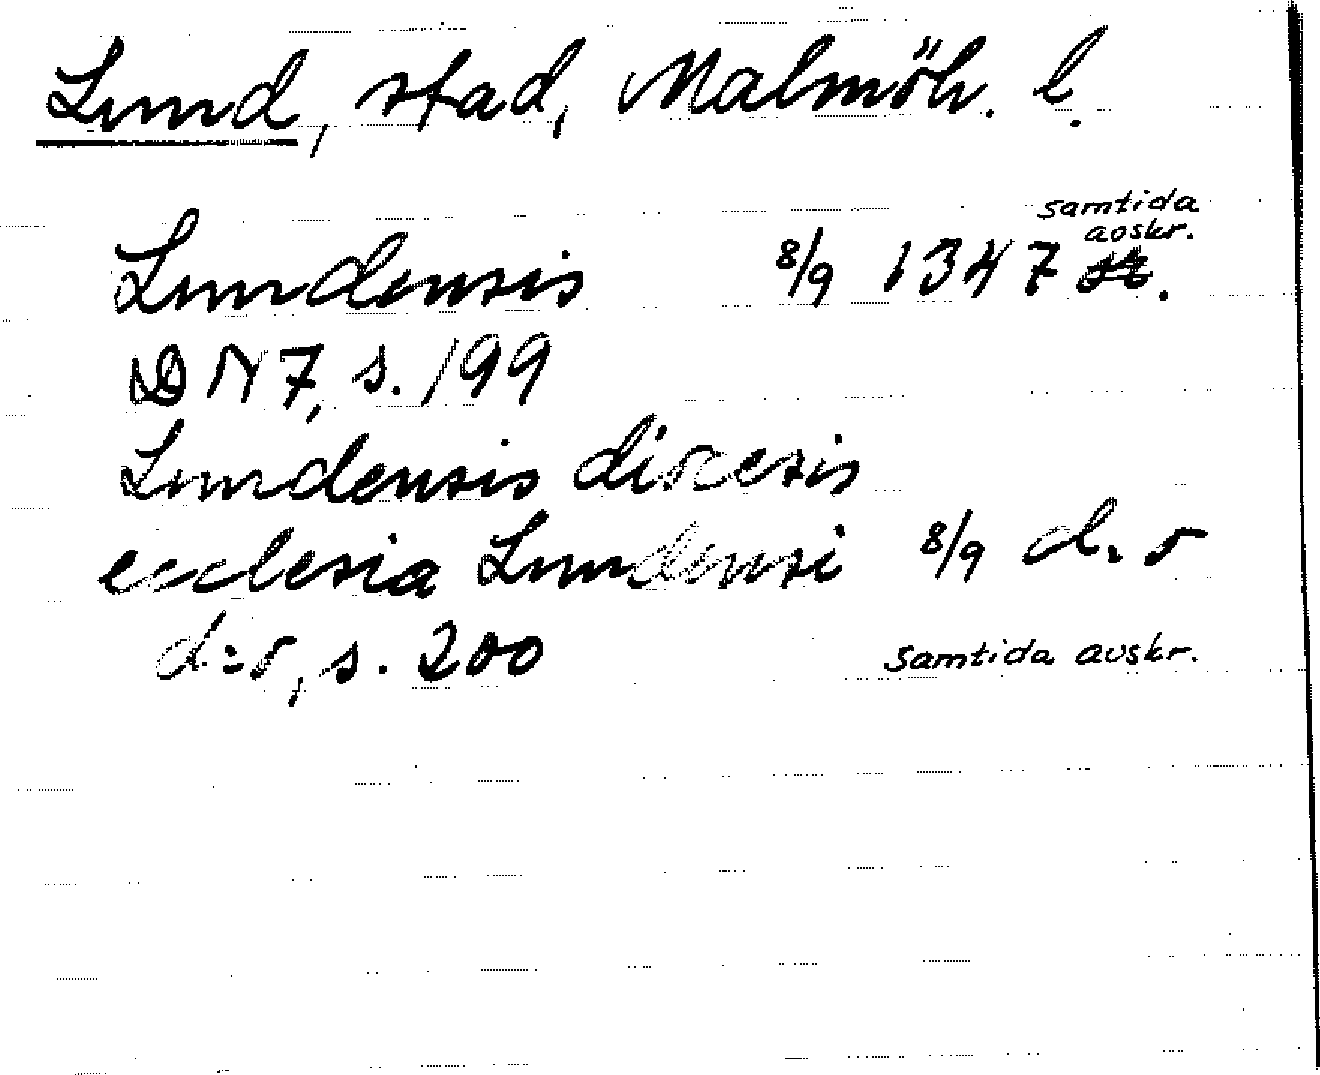 Lund, stad, Malmöh. l.
samtida
avskr.
Lundensis 8/9 1347
DN 7, s. 199
Lundensis diocesis
ecclesia Lundensi 8/9 d:o
d:o, s. 200 samtida avskr.